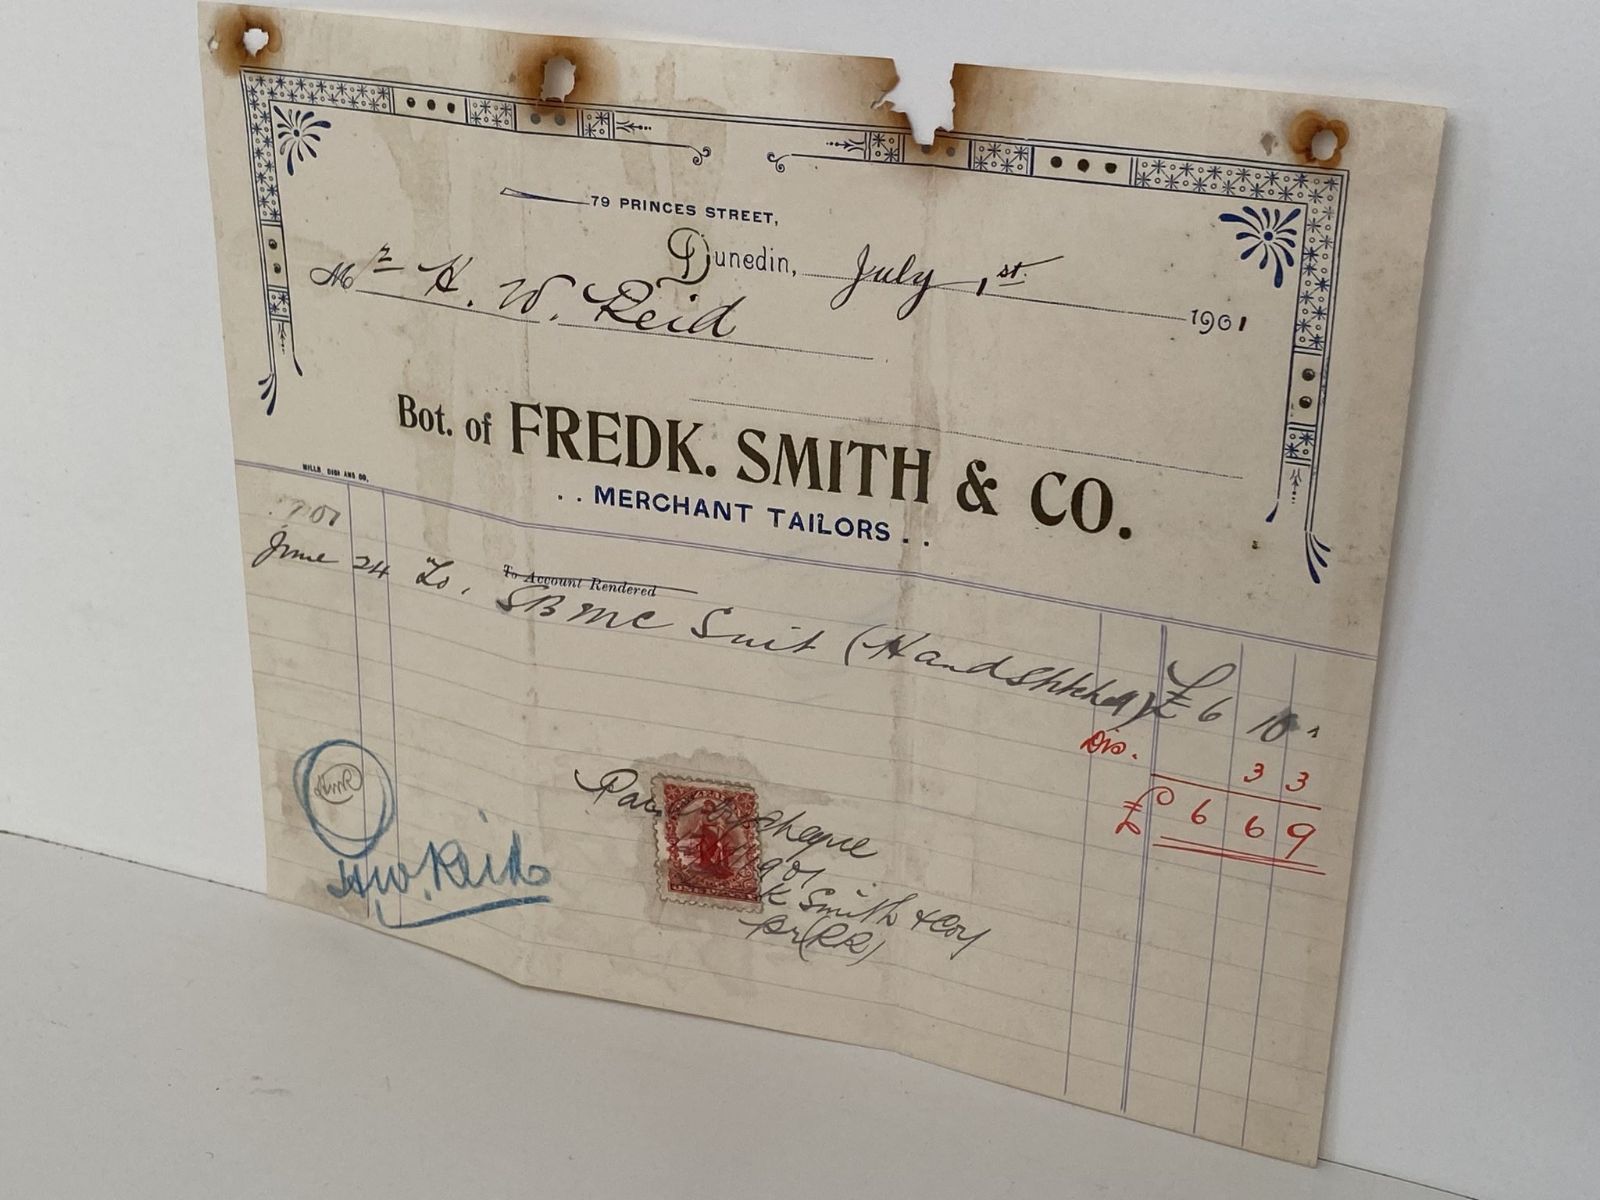 79 PRINCES STREET,
Dunedin, July 1st. 1901
Mr H. W. Reid
Bot. of FREDK. SMITH & CO.
. . MERCHANT TAILORS . .
MILLS, DICK AND CO.
1901
June 24 To, To Account Rendered
SBMC Suit (Hand £ 6 10 "
Dis. 3 3
£ 6 6 9
HWR
H.W. Reid
Paid by cheque
Smith & Coy
pr (RR)